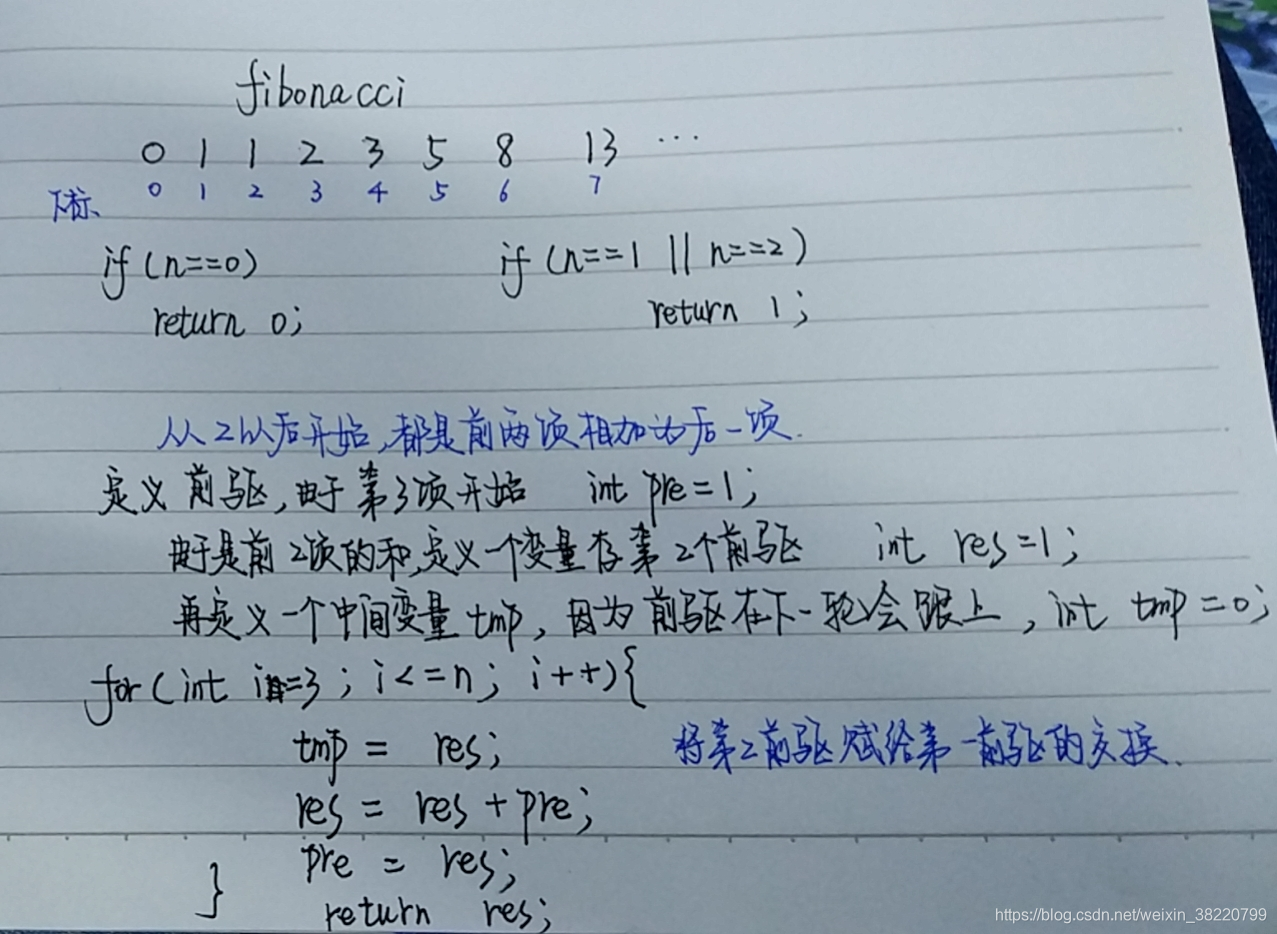 fibonacci
0 1 1 2 3 5 8 13 ...
下标、 0 1 2 3 4 5 6 7
if (n==0) if (n==1 || n==2)
return 0; return 1;
从2以后开始,都是前两项相加为后一项.
定义前驱,由于第3项开始 int pre=1;
由于是前2项的和,定义一个变量存第2个前驱 int res=1;
再定义一个中间变量tmp,因为前驱在下一轮会跟上,int tmp=0;
for(int i=3; i<=n; i++){
tmp = res; 将第2前驱赋给第一前驱的交换.
res = res + pre;
pre = res;
} return res;
https://blog.csdn.net/weixin_38220799